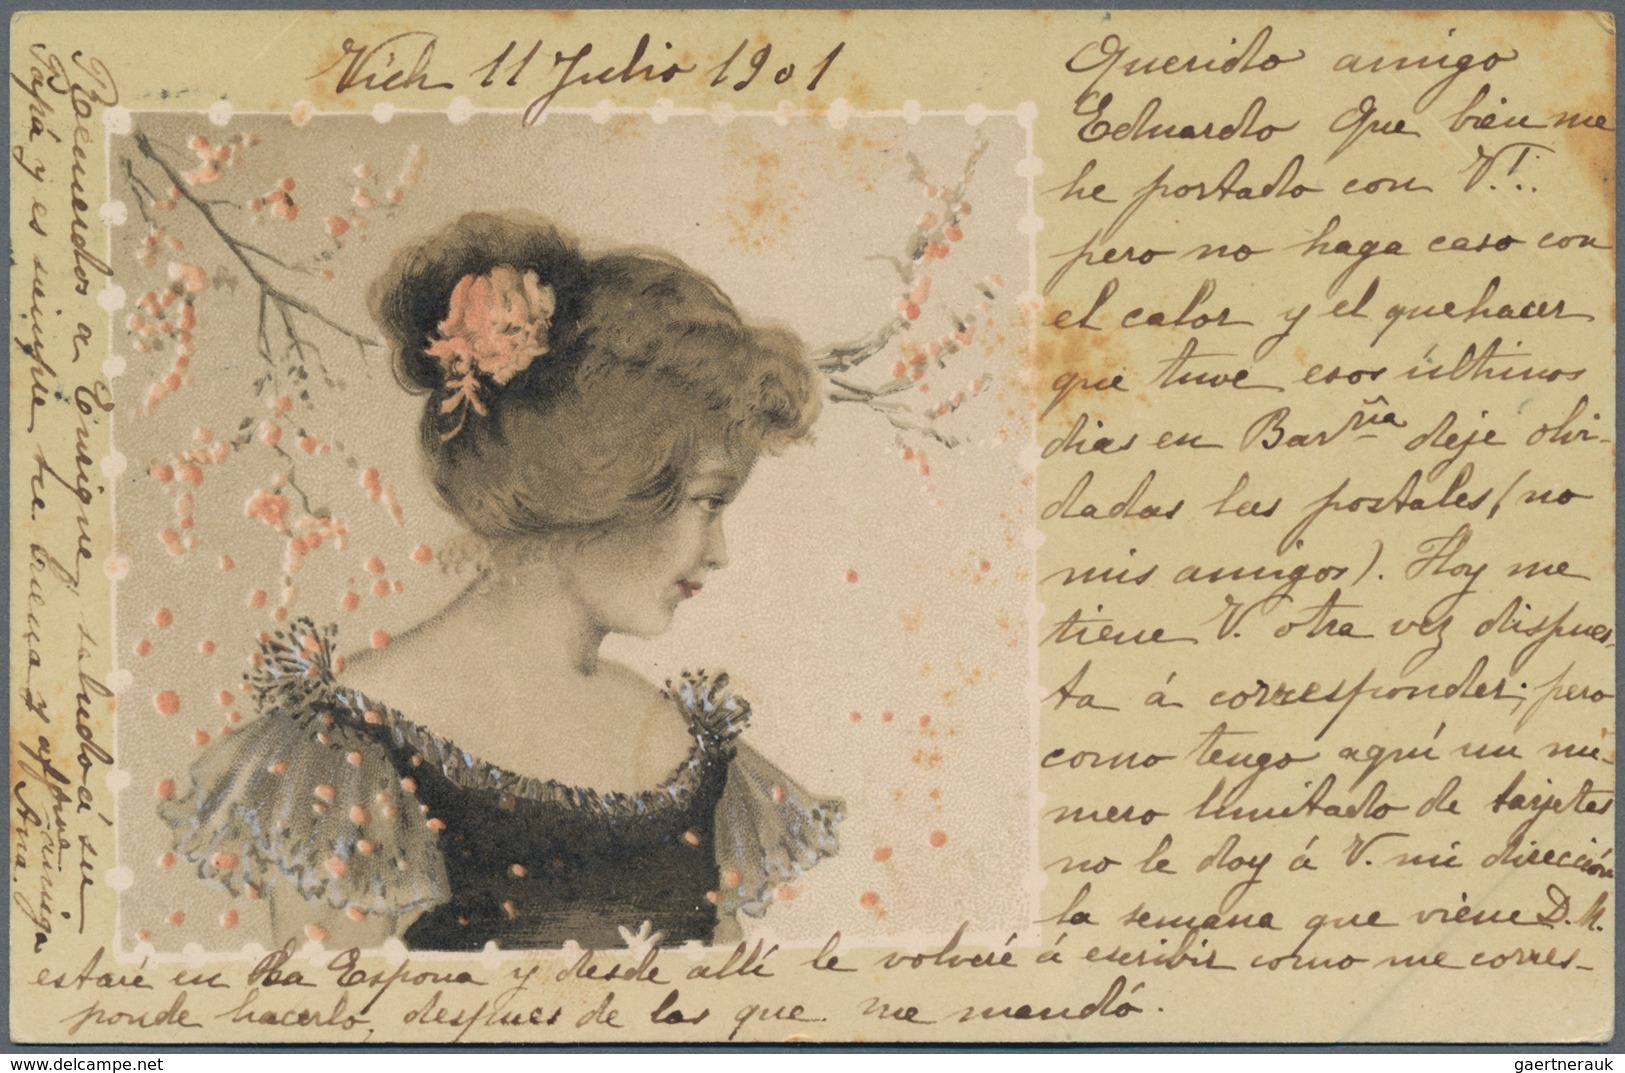 Vich 11 Julio 1901
Querido amigo
Eduardo Que bien me
he portado con V.!..
pero no haga caso con
el calor y el quehacer
que tuve esos últimos
dias en Barña deje olvi-
dadas las postales (no
mis amigos). Hoy me
tiene V. otra vez dispues-
ta á corresponder; pero
como tengo aquí un nú-
mero limitado de tarjetas
no le doy á V. mi dirección
la semana que viene D. M.
estaré en La Espona y desde allí le volveré á escribir como me corres-
ponde hacerlo, despues de las que me mandó.
Recuerdos a Enrique, saludo á su
Papá y es siempre su buena y aftma amiga
Ana.
gaertnerauk @ delcampe.net